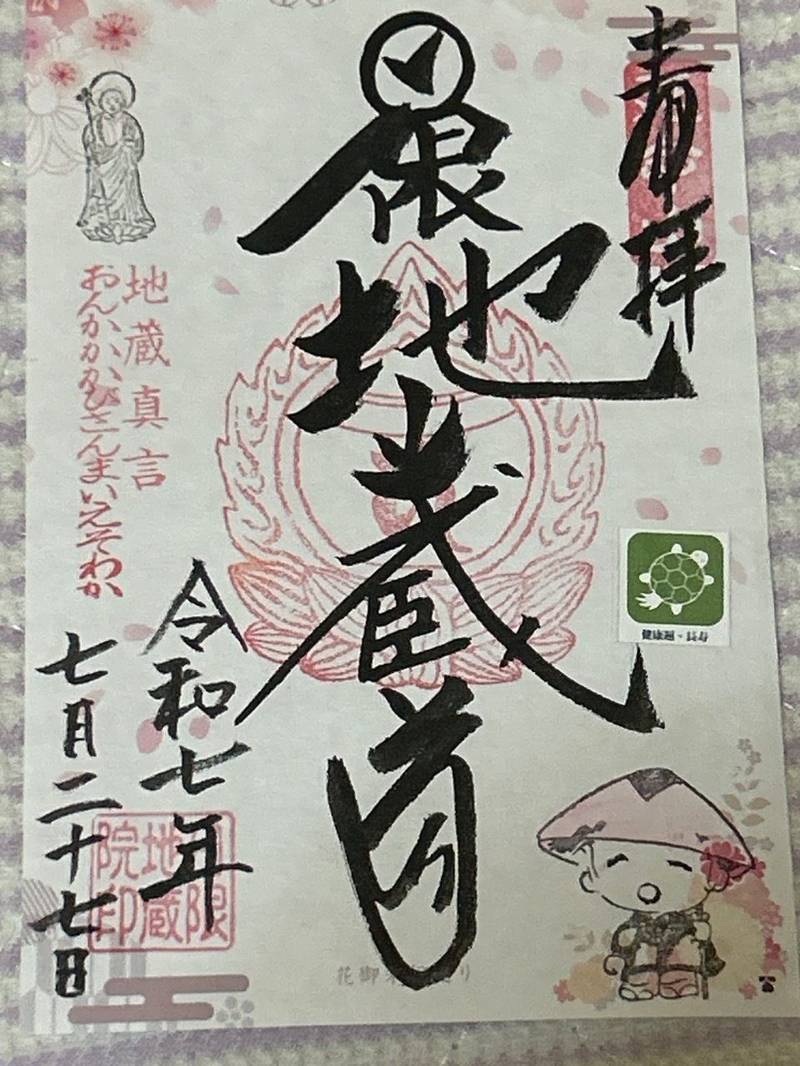 奉拝
日限地蔵尊
地蔵真言
おんかかかびさんまいえそわか
令和七年
七月二十七日
日限
地蔵
院印
健康運・長寿